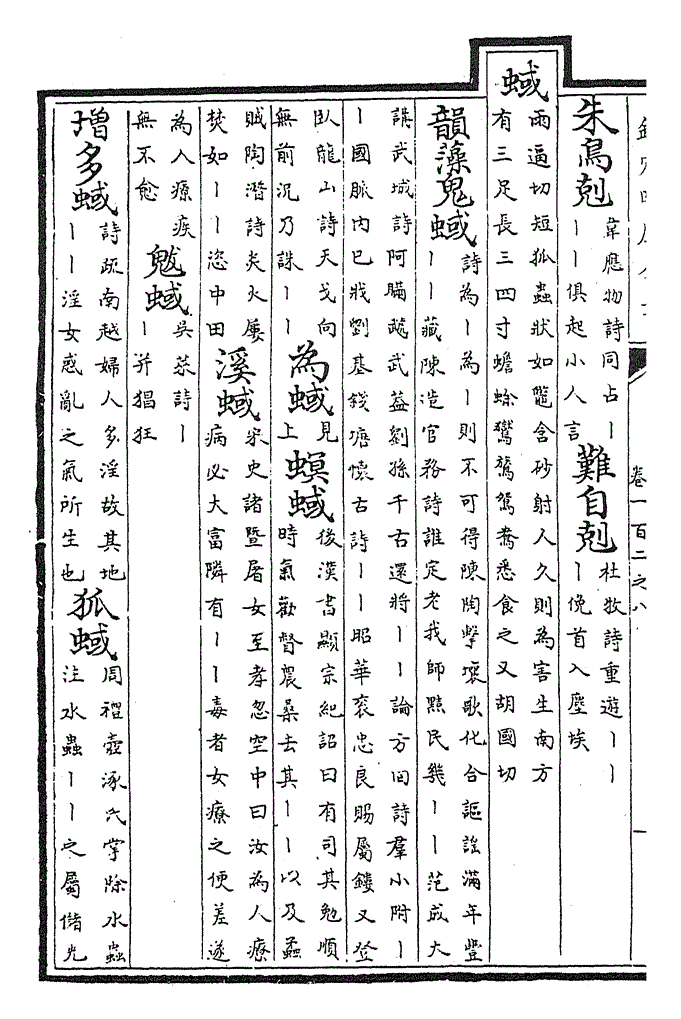 卷一百二之八
一
朱鳥剋
韋應物詩同占丨
丨丨俱起小人言
難自剋
杜牧詩重遊丨丨
丨俛首入塵埃
蜮
雨逼切短狐蟲狀如鼈含砂射人久則為害生南方
有三足長三四寸蟾蜍鴛鴦悉食之又胡國切
韻藻鬼蜮
詩為丨為丨則不可得陳陶擊壤歌化合謳謡滿年豐
丨丨藏陳造官務詩誰定老我師黠民幾丨丨范成大
講武城詩阿瞞武蓋劉孫千古還將丨丨論方回詩羣小附丨
丨國脈内已戕劉基錢塘懷古詩丨丨昭華衮忠良賜屬鏤又登
臥龍山詩天戈向
無前沉乃誅丨丨
為蜮
見
上
螟蜮
後漢書顯宗紀詔曰有司其勉順
時氣勸督農桑去其丨丨以及蟊
賊陶潛詩炎火屢
焚如丨丨恣中田
溪蜮
宋史諸暨屠女至孝忽空中曰汝為人療
病必大富隣有丨丨毒者女療之便差遂
為人療疾
無不愈
魃蜮
吳萊詩丨
丨并猖狂
增多蜮
詩疏南越婦人多淫故其地
丨丨淫女惑亂之氣所生也
狐蜮
周禮壺涿氏掌除水蟲
注水蟲丨丨之屬儲光